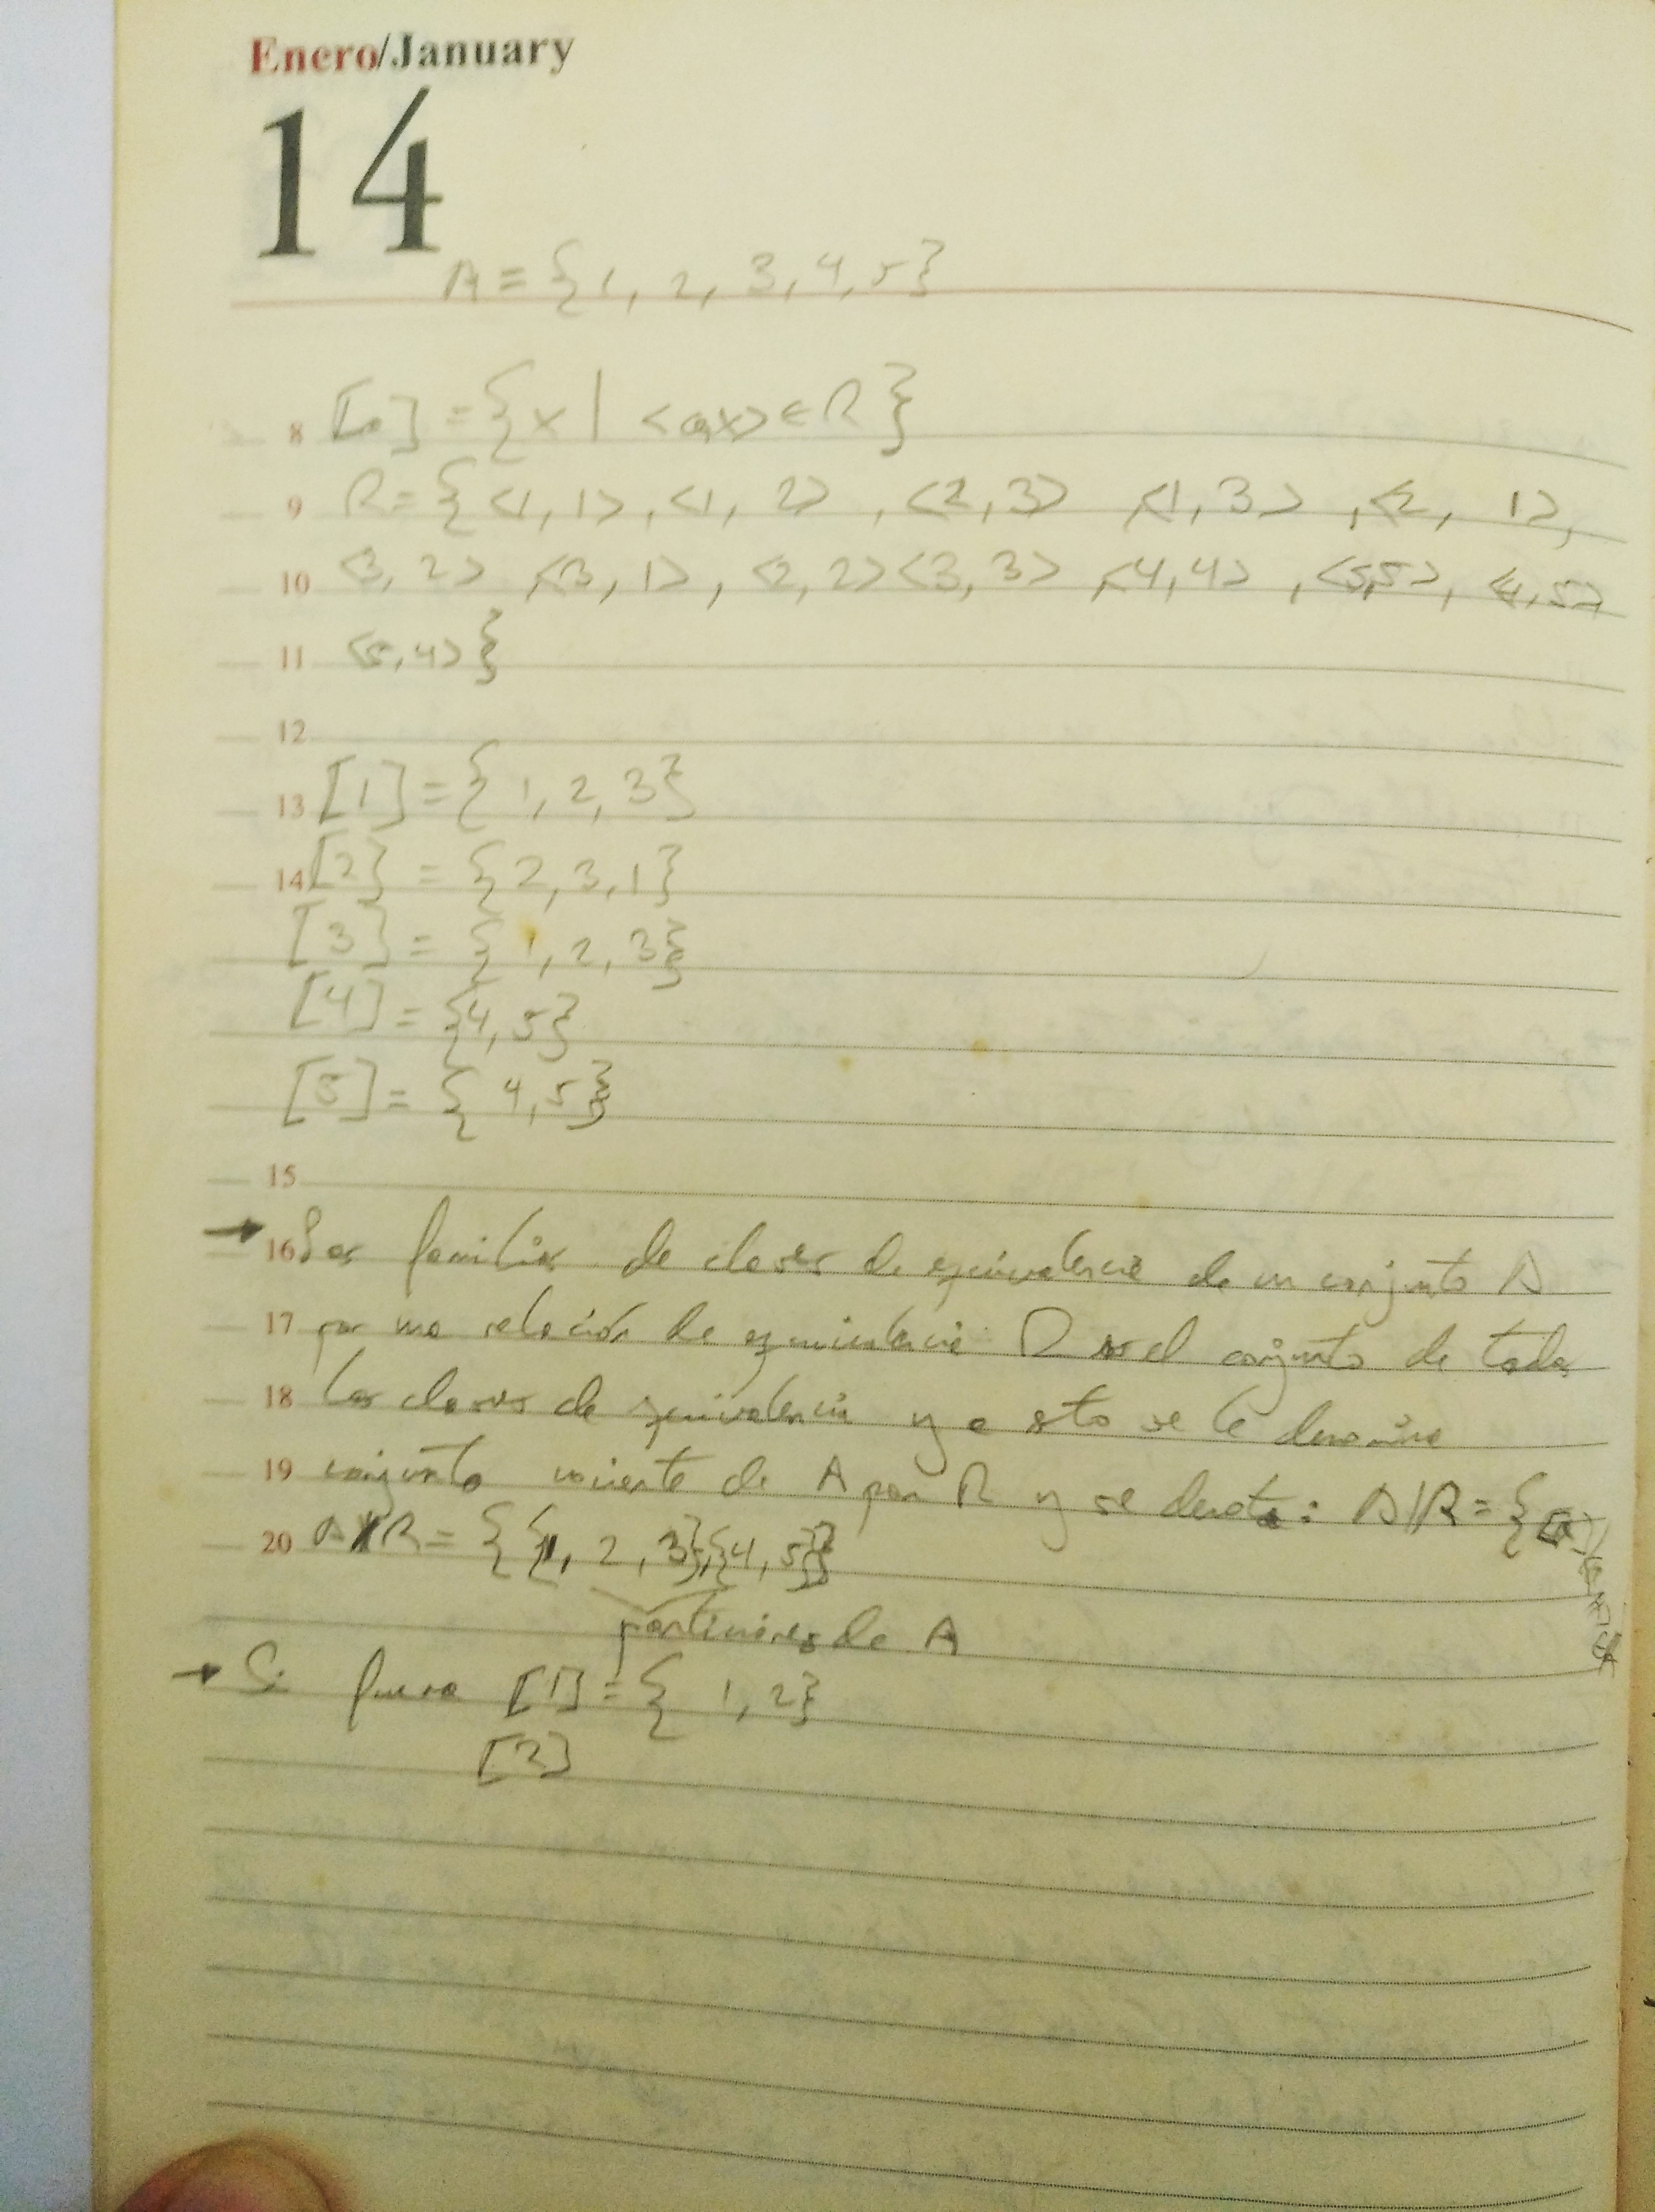 Enero/January
14
A = {1, 2, 3, 4, 5}
8 [a] = {x | <a,x> ∈ R}
9 R = {<1, 1>, <1, 2>, <2, 3>, <1, 3>, <2, 1>,
10 <3, 2>, <3, 1>, <2, 2> <3, 3>, <4,4>, <5,5>, <4,5>
11 <5,4>}
12
13 [1] = {1, 2, 3}
14 [2} = {2, 3, 1}
[3] = {1, 2, 3}
[4] = {4, 5}
[5] = {4, 5}
15
→ 16 Las familias de clases de equivalencia de un conjunto A
17 por una relación de equivalencia R es el conjunto de todas
18 las clases de equivalencia y a esto se le denomina
19 conjunto cociente de A por R y se denota: A|R = {[a]
20 A/R = {{1, 2, 3},{4, 5}}
particiones de A
→ Si fuera [1] = {1, 2}
[2]